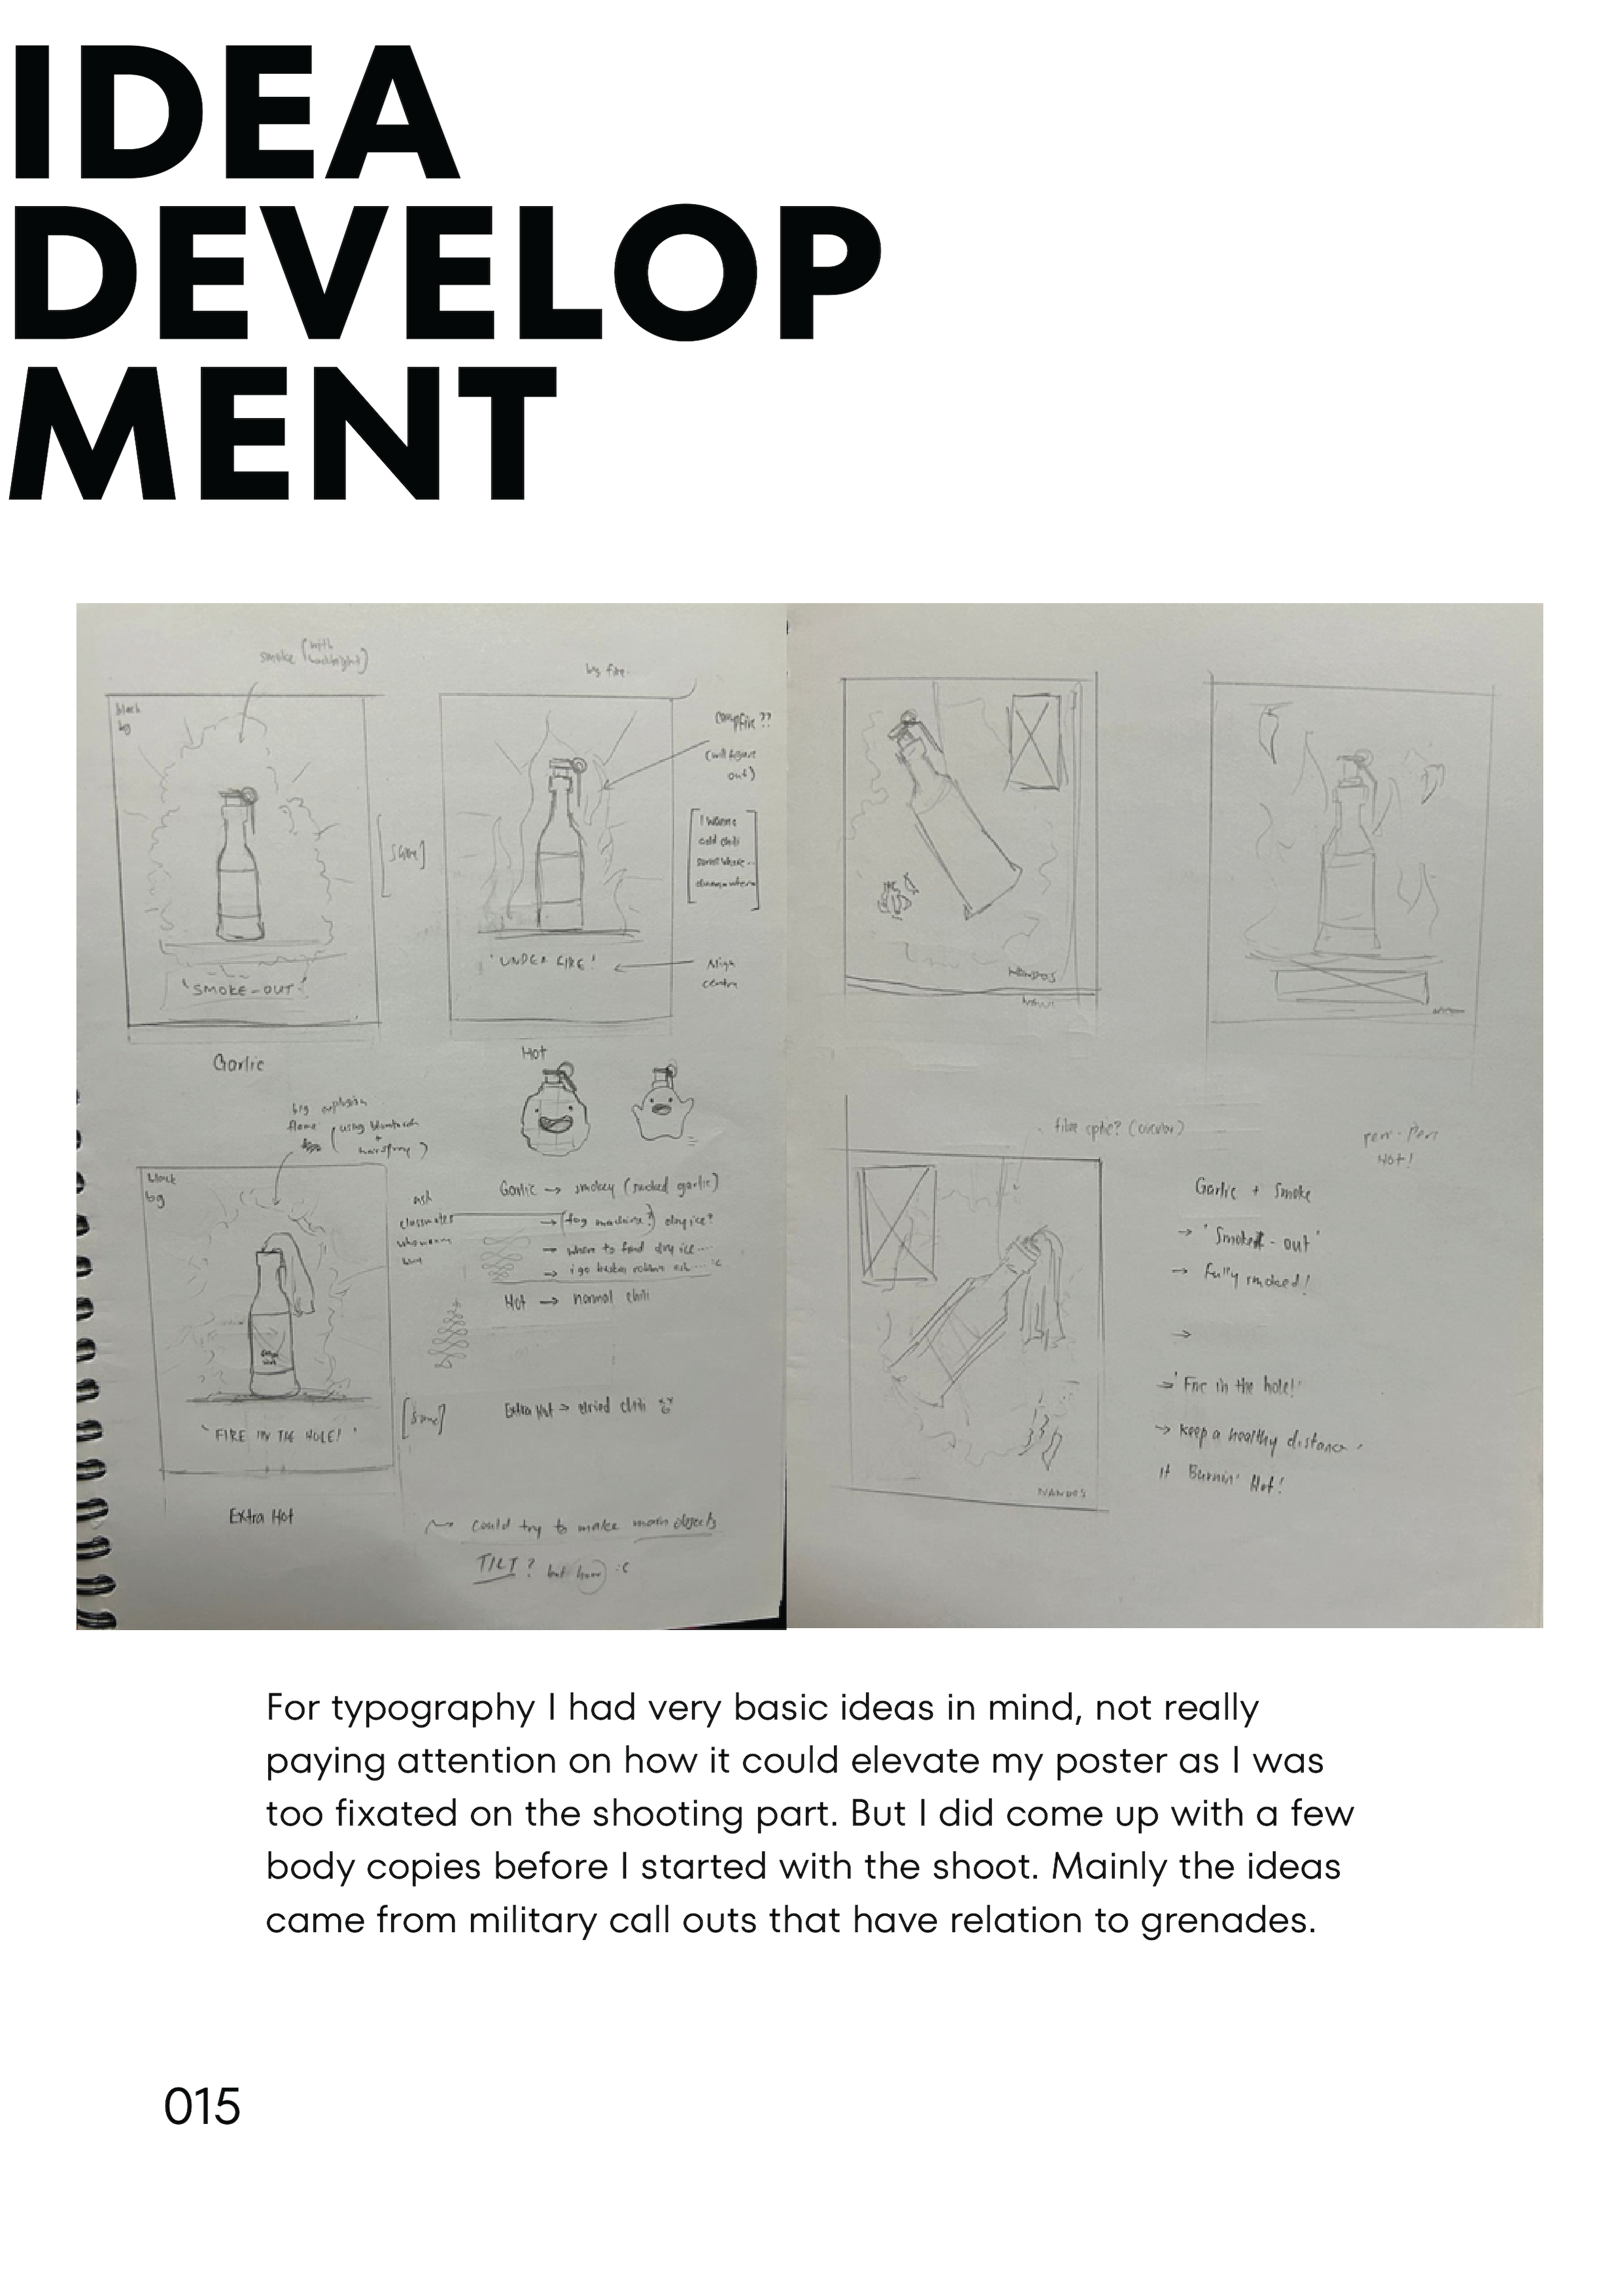 IDEA
DEVELOP
MENT
smoke (with
backlight)
black
bg
[same]
'SMOKE-OUT'
Garlic
big fire
campfire??
(will figure
out)
'UNDER FIRE!'
Align
centre
Hot
big explosion
flame (using blowtorch
+
hairspray)
black
bg
[same]
'FIRE IN THE HOLE!'
Extra Hot
ask
Garlic → smokey (smoked garlic)
→ (fog machine?) dry ice?
→ where to find dry ice...
→ i go baskin robbin ask... :c
Hot → normal chili
Extra Hot → dried chili
could try to make main objects
TILT? but how :c
NANDOS
fibre optic? (circular)
NANDOS
peri-peri
HOT!
Garlic + Smoke
→ 'Smoke-out'
→ Fully smoked!
→
→ 'Fire in the hole!'
→ Keep a healthy distance,
it Burnin' Hot!
For typography I had very basic ideas in mind, not really
paying attention on how it could elevate my poster as I was
too fixated on the shooting part. But I did come up with a few
body copies before I started with the shoot. Mainly the ideas
came from military call outs that have relation to grenades.
015